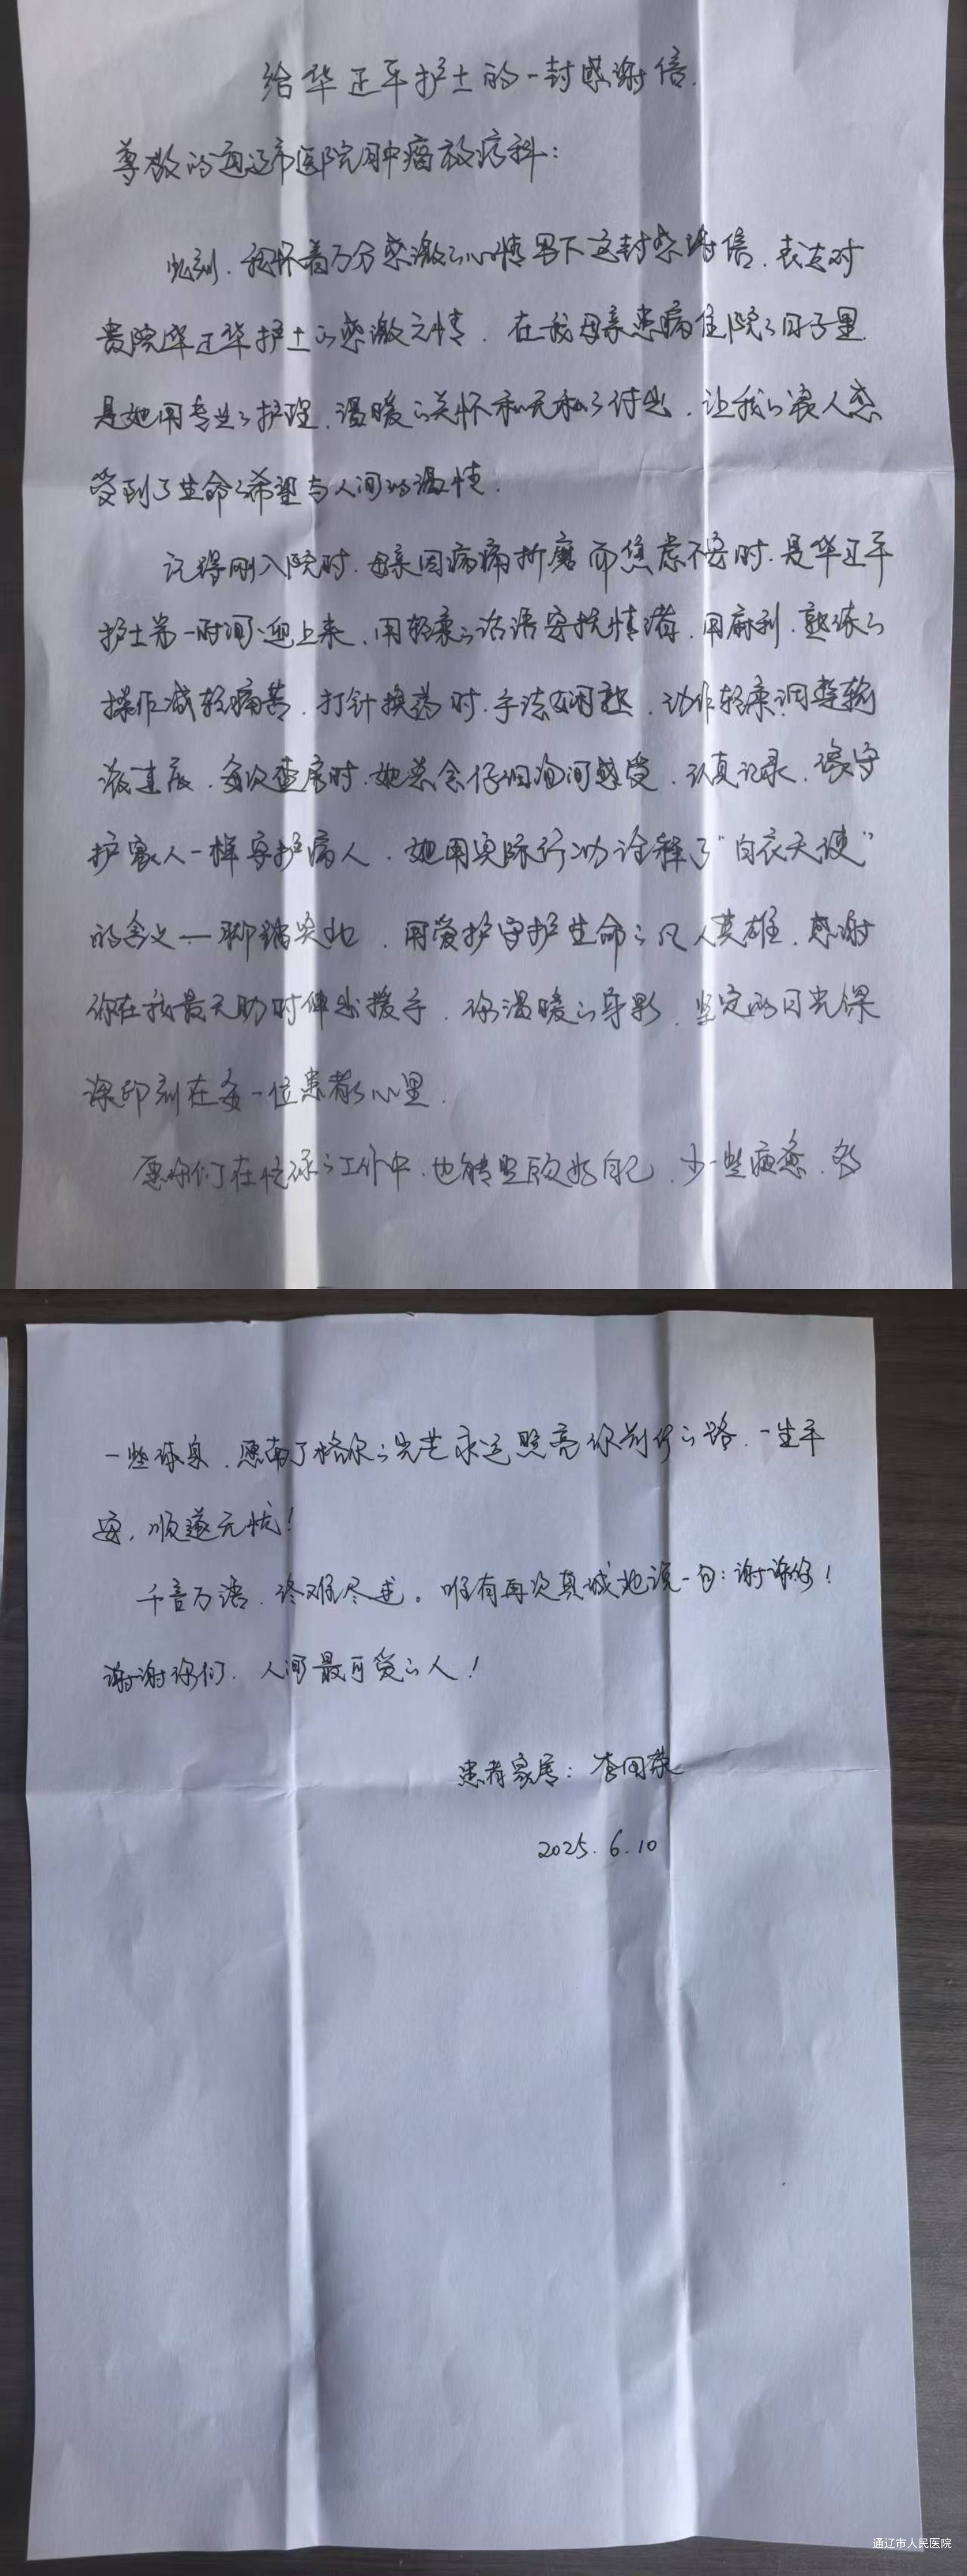 给华正平护士的一封感谢信.
尊敬的通辽市医院肿瘤放疗科：
此刻，我怀着万分感激的心情写下这封感谢信，表达对
贵院华正华护士的感激之情，在我母亲患病住院的日子里
是她用专业的护理，温暖的关怀和无私的付出，让我的家人感
受到了生命的希望与人间的温情.
记得刚入院时，母亲因病痛折磨而焦虑不安时，是华正平
护士第一时间迎上来，用轻柔的话语安抚情绪，用麻利，熟练的
操作减轻痛苦，打针换药时，手法娴熟，动作轻柔，调整输
液速度，每次查房时，她总会仔细询问感受，认真记录，像守
护家人一样守护病人，她用实际行动诠释了“白衣天使”
的含义—脚踏实地，用爱护守护生命的凡人英雄，感谢
你在我最无助时伸出援手，你温暖的身影，坚定的目光深
深印刻在每一位患者的心里.
愿你们在忙碌的工作中，也能照顾好自己，少一些疲惫，多
一些休息，愿南丁格尔的光芒永远照亮你前行的路，一生平
安，顺遂无忧！
千言万语，终难尽述。唯有再次真诚地说一句：谢谢你！
谢谢你们，人间最可爱的人！
患者家属：李国荣
2025.6.10
通辽市人民医院